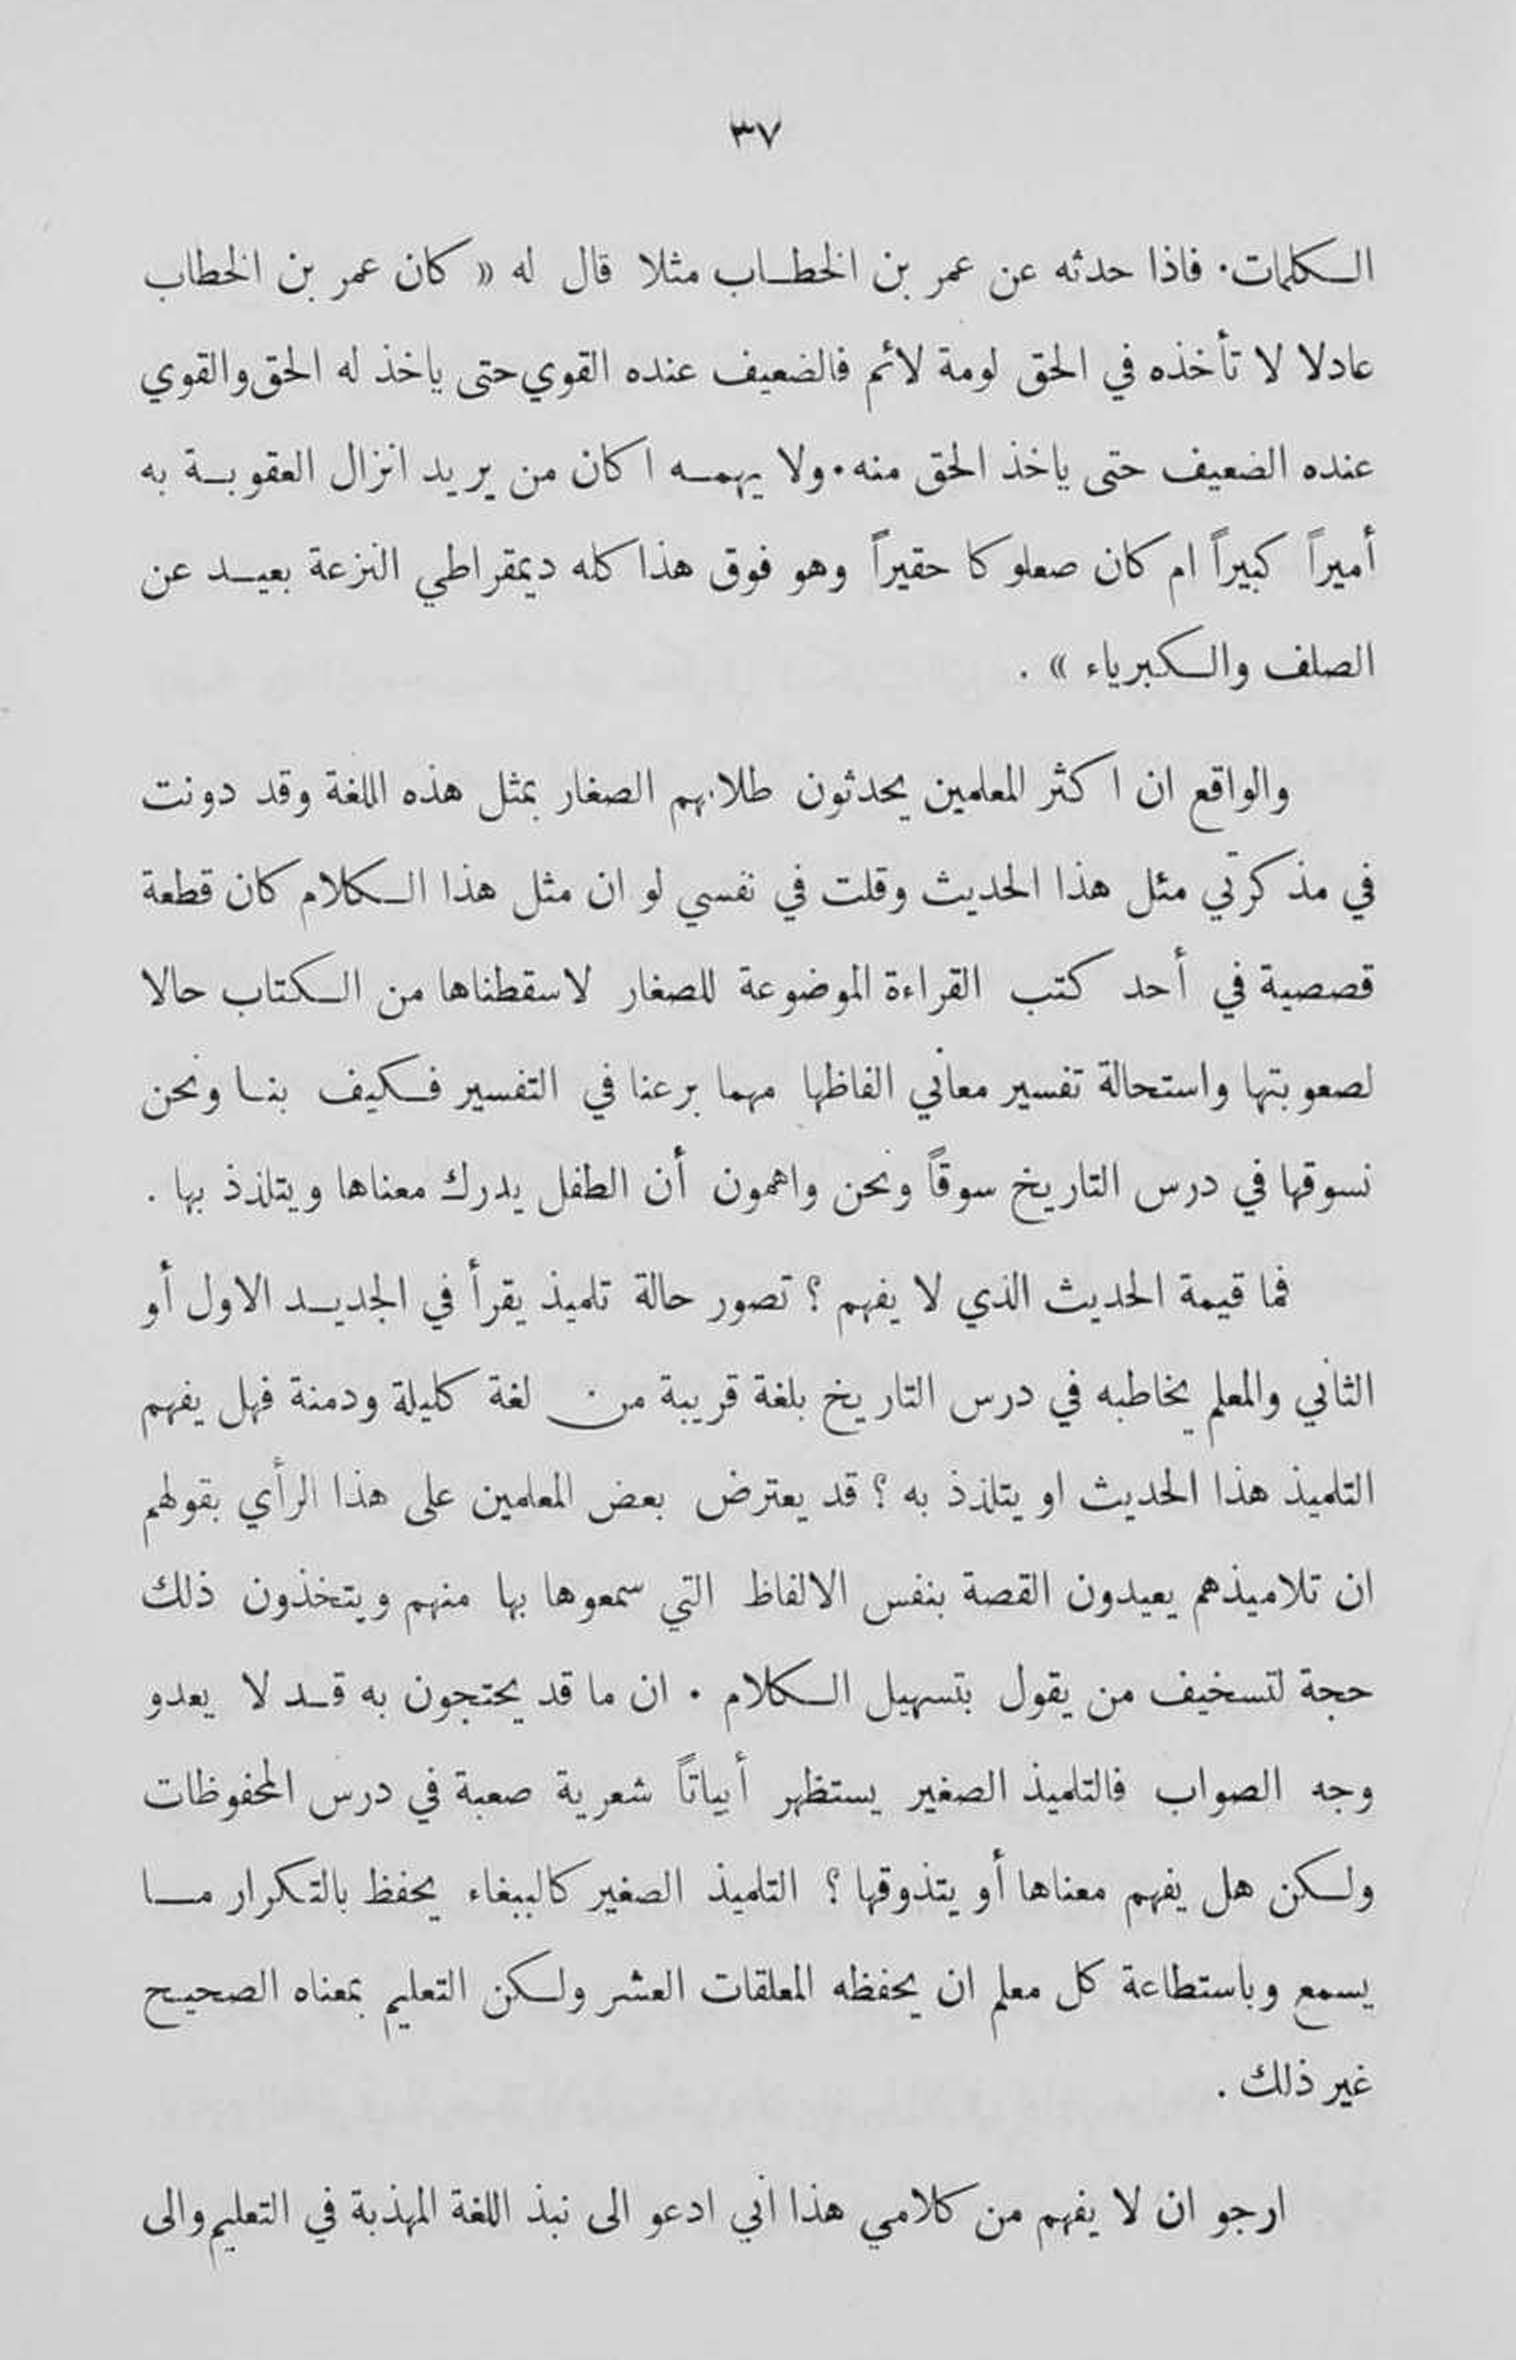 ٣٧
الكلمات. فاذا حدثه عن عمر بن الخطاب مثلا قال له « كان عمر بن الخطاب
عادلا لا تأخذه في الحق لومة لائم فالضعيف عنده القوي حتى ياخذ له الحق والقوي
عنده الضعيف حتى ياخذ الحق منه. ولا يهمه اكان من يريد انزال العقوبة به
أميراً كبيراً ام كان صعلوكا حقيراً وهو فوق هذا كله ديمقراطي النزعة بعيد عن
الصلف والكبرياء » .
والواقع ان اكثر المعلمين يحدثون طلابهم الصغار بمثل هذه اللغة وقد دونت
في مذكرتي مثل هذا الحديث وقلت في نفسي لو ان مثل هذا الكلام كان قطعة
قصصية في أحد كتب القراءة الموضوعة للصغار لاسقطناها من الكتاب حالا
لصعوبتها واستحالة تفسير معاني الفاظها مهما برعنا في التفسير فكيف بنا ونحن
نسوقها في درس التاريخ سوقاً ونحن واهمون أن الطفل يدرك معناها ويتلذذ بها .
فما قيمة الحديث الذي لا يفهم ؟ تصور حالة تلميذ يقرأ في الجديد الاول أو
الثاني والمعلم يخاطبه في درس التاريخ بلغة قريبة من لغة كليلة ودمنة فهل يفهم
التلميذ هذا الحديث او يتلذذ به ؟ قد يعترض بعض المعلمين على هذا الرأي بقولهم
ان تلاميذهم يعيدون القصة بنفس الالفاظ التي سمعوها بها منهم ويتخذون ذلك
حجة لتسخيف من يقول بتسهيل الكلام . ان ما قد يحتجون به قد لا يعدو
وجه الصواب فالتلميذ الصغير يستظهر أبياتاً شعرية صعبة في درس المحفوظات
ولكن هل يفهم معناها أو يتذوقها ؟ التلميذ الصغير كالببغاء يحفظ بالتكرار ما
يسمع وباستطاعة كل معلم ان يحفظه المعلقات العشر ولكن التعليم بمعناه الصحيح
غير ذلك .
ارجو ان لا يفهم من كلامي هذا اني ادعو الى نبذ اللغة المهذبة في التعليم والى